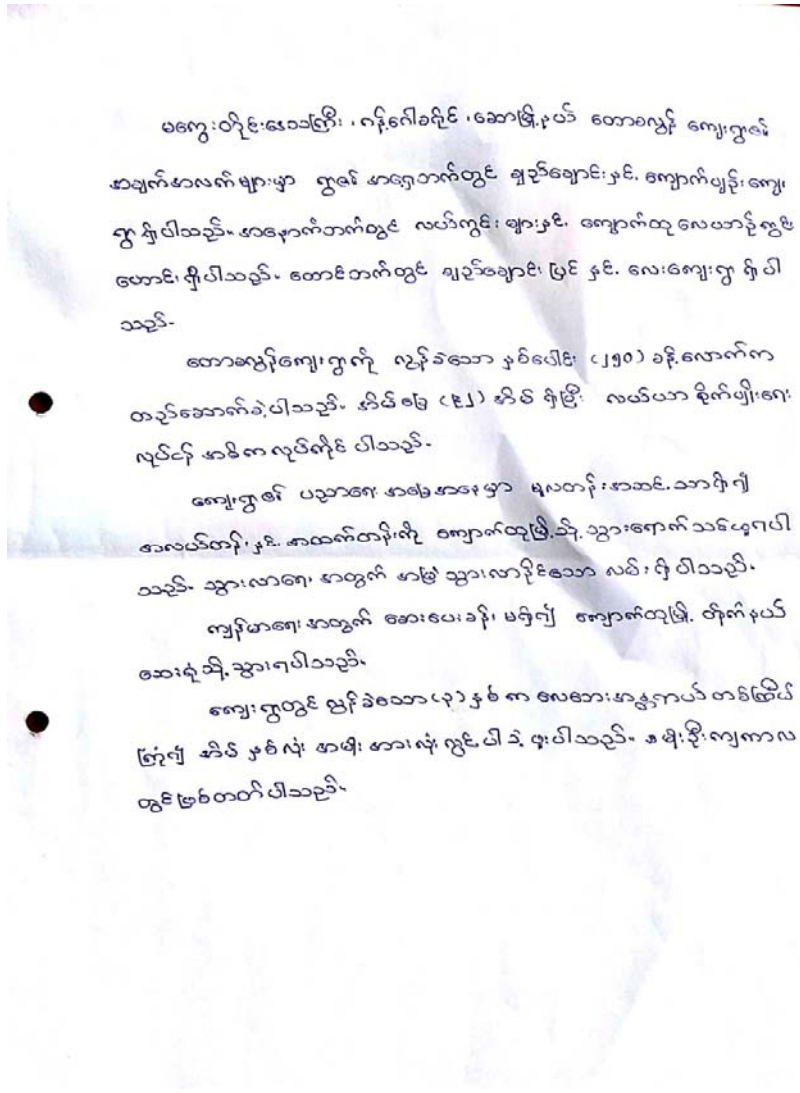 မကွေးတိုင်းဒေသကြီး၊ ဂန့်ဂေါခရိုင်၊ ဆောမြို့နယ် တောစလွန် ကျေးရွာ၏
အချက်အလက်များမှာ ရွာ၏ အရှေ့ဘက်တွင် ချည်ချောင်းနှင့် ကျောက်ပျဉ်းကျေး
ရွာ ရှိပါသည်။ အနောက်ဘက်တွင် လယ်ကွင်းများနှင့် ကျောက်ထု လေယာဉ်ကွင်း
ဟောင်း ရှိပါသည်။ တောင်ဘက်တွင် ချည်ချောင်း မြင် နှင့် လေးကျေးရွာ ရှိပါ
သည်။
တောစလွန်ကျေးရွာကို လွန်ခဲ့သော နှစ်ပေါင်း (၂၅၀) ခန့်လောက်က
တည်ဆောက်ခဲ့ပါသည်။ အိမ်ခြေ (၉၂) အိမ် ရှိပြီး လယ်ယာ စိုက်ပျိုးရေး
လုပ်ငန်း အဓိက လုပ်ကိုင် ပါသည်။
ကျေးရွာ၏ ပညာရေး အခြေအနေမှာ မူလတန်းအဆင့်သာရှိ၍
အလယ်တန်းနှင့် အထက်တန်းကို ကျောက်ထုမြို့သို့ သွားရောက် သင်ယူရပါ
သည်။ သွားလာရေး အတွက် အမြဲ သွားလာနိုင်သော လမ်း ရှိပါသည်။
ကျန်မာရေး အတွက် ဆေးပေးခန်း မရှိ၍ ကျောက်ထုမြို့ တိုက်နယ်
ဆေးရုံသို့ သွားရပါသည်။
ကျေးရွာတွင် လွန်ခဲ့သော (၃) နှစ် က လေဘေးအန္တရာယ် တစ်ကြိမ်
ကြုံ၍ အိမ် နှစ်လုံး အမိုး အားလုံး လွင့်ပါခဲ့ဖူးပါသည်။ မိုးဦးကျကာလ
တွင်ဖြစ်တတ်ပါသည်။